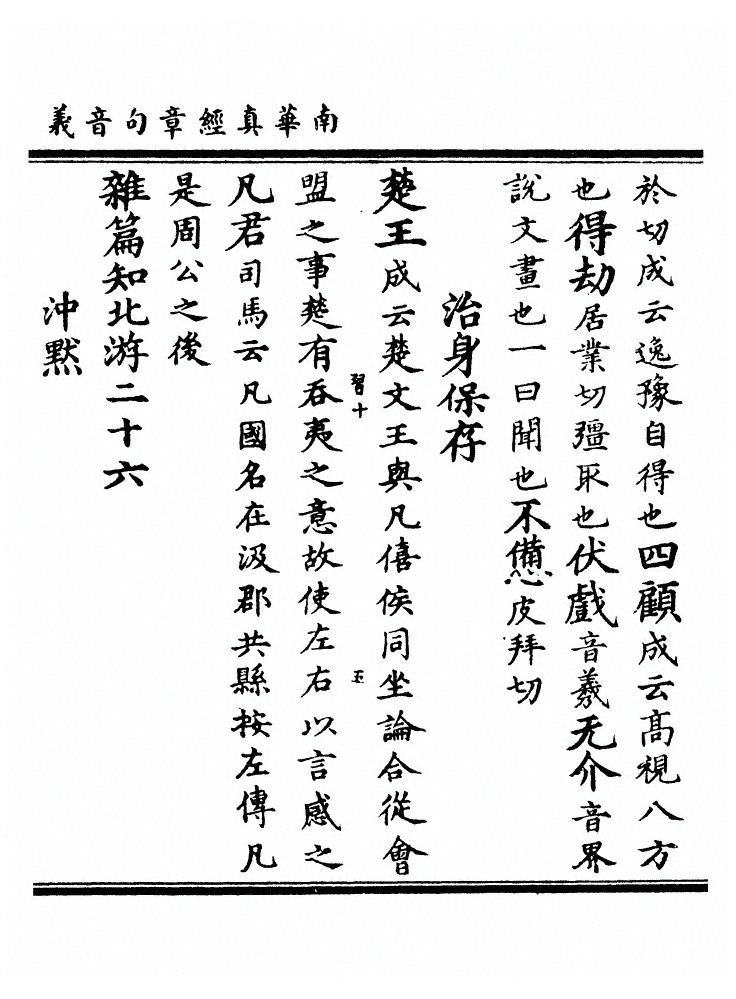 南華真經章句音義
於切成云逸豫自得也四顧成云高視八方
也得劫居業切彊取也伏戲音羲无介音界
說文畫也一曰聞也不憊皮拜切
治身保存
楚王成云楚文王與凡僖侯同坐論合從會
習十
五
盟之事楚有吞夷之意故使左右以言感之
凡君司馬云凡國名在汲郡共縣桉左傳凡
是周公之後
雜篇知北游二十六
沖默